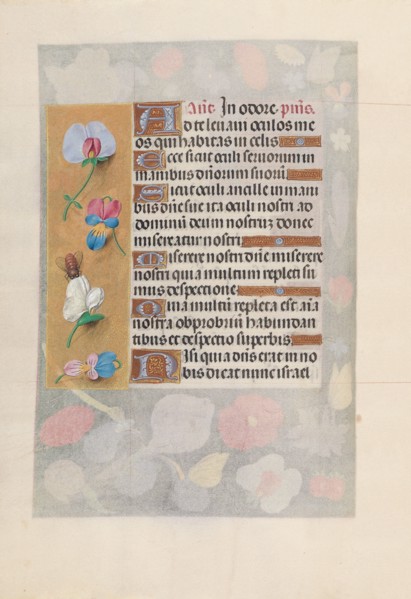 Añe. In odore. p̃ms.
Ad te levavi oculos me
os qui habitas in celis
Ecce sicut oculi servorum in
manibus dñorum suorũ
Sicut oculi ancille in mani
bus dñe sue ita oculi nostri ad
dominũ deum nostrum donec
misereatur nostri
Miserere nostri dñe miserere
nostri quia multum repleti su
mus despectione
Quia multũ repleta est aĩa
nostra obprobriũ habundan
tibus et despectio superbis
Nisi quia dñs erat in no
bis dicat nunc israel